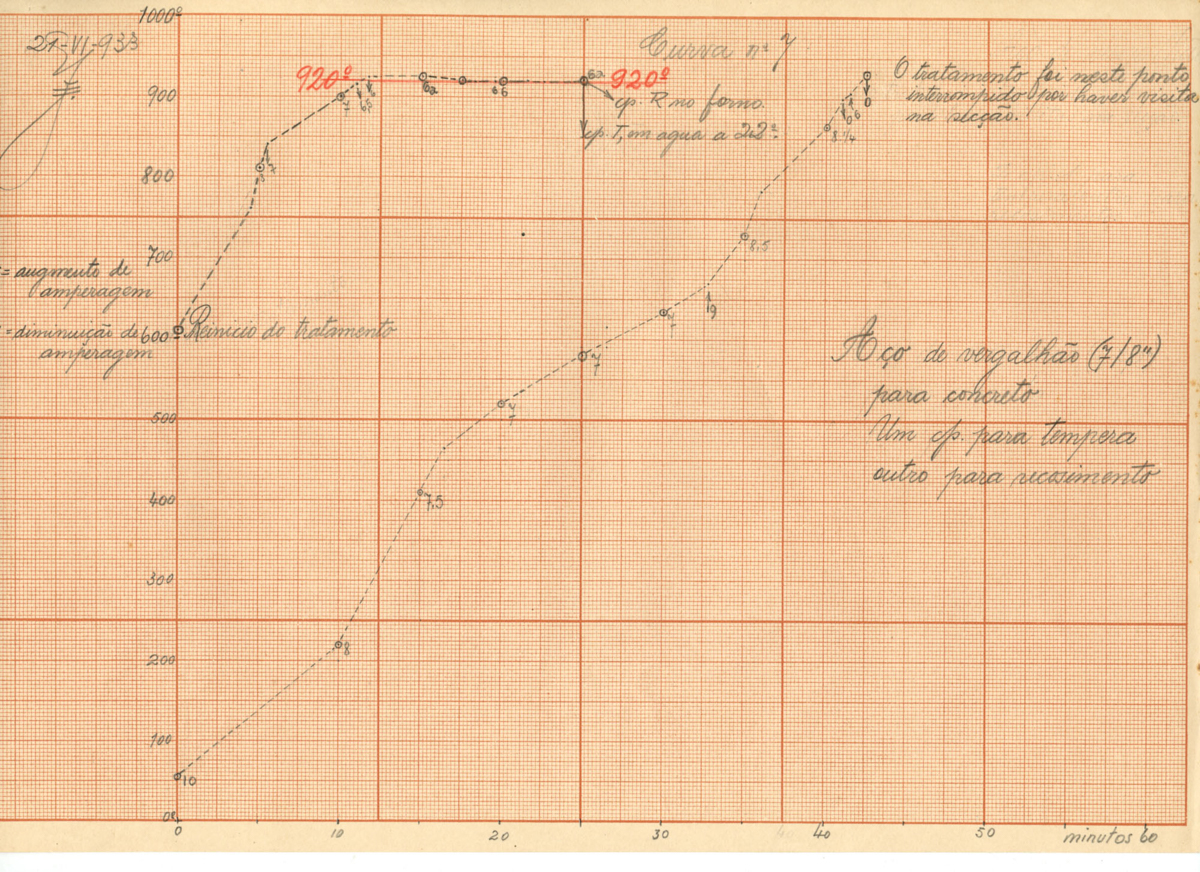 1000º
21-VI-933
Curva nº 7
920º
6a
66
6a
920º
cp. R no forno.
cp. T, em agua a 22º.
O tratamento foi neste ponto
interrompido por haver visita
na secção.
900
8 1/4
66
800
7
700
8,5
= augmento de
amperagem
9
= diminuição de
amperagem
600
Reinicio do tratamento
Aço de vergalhão (7/8")
para concreto
Um cp. para tempera
outro para recosimento
500
400
7,5
300
200
8
100
10
0º
0
10
20
30
40
50
minutos 60